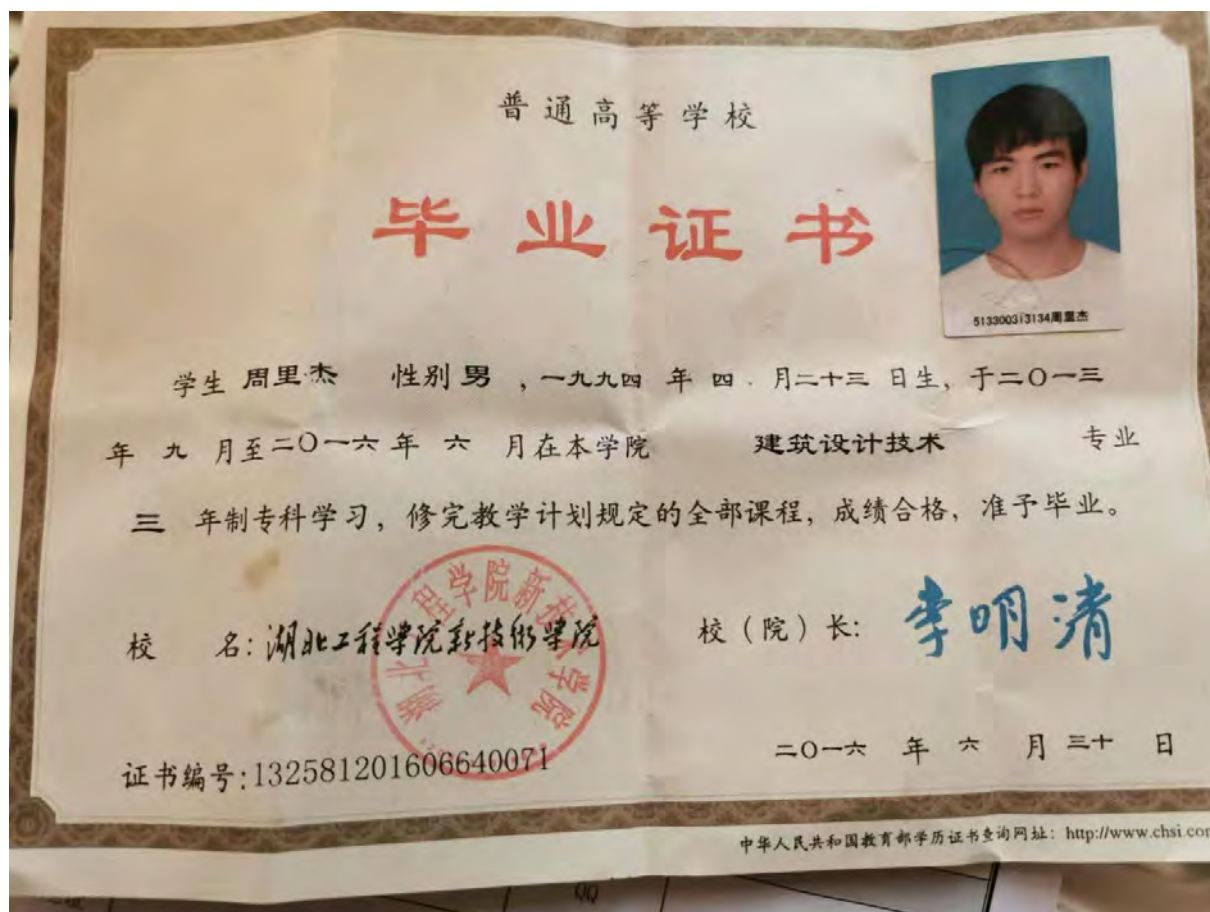 普通高等学校
毕业证书
513300313134周里杰
学生 周里杰 性别 男 ，一九九四 年 四 月二十三 日生，于二〇一三
年 九 月至二〇一六 年 六 月在本学院 建筑设计技术 专业
三 年制专科学习，修完教学计划规定的全部课程，成绩合格，准予毕业。
湖北工程学院新技术学院
校 名：湖北工程学院新技術学院
校（院）长：李明清
二〇一六 年 六 月 三十 日
证书编号:132581201606640071
中华人民共和国教育部学历证书查询网址：http://www.chsi.com
QQ